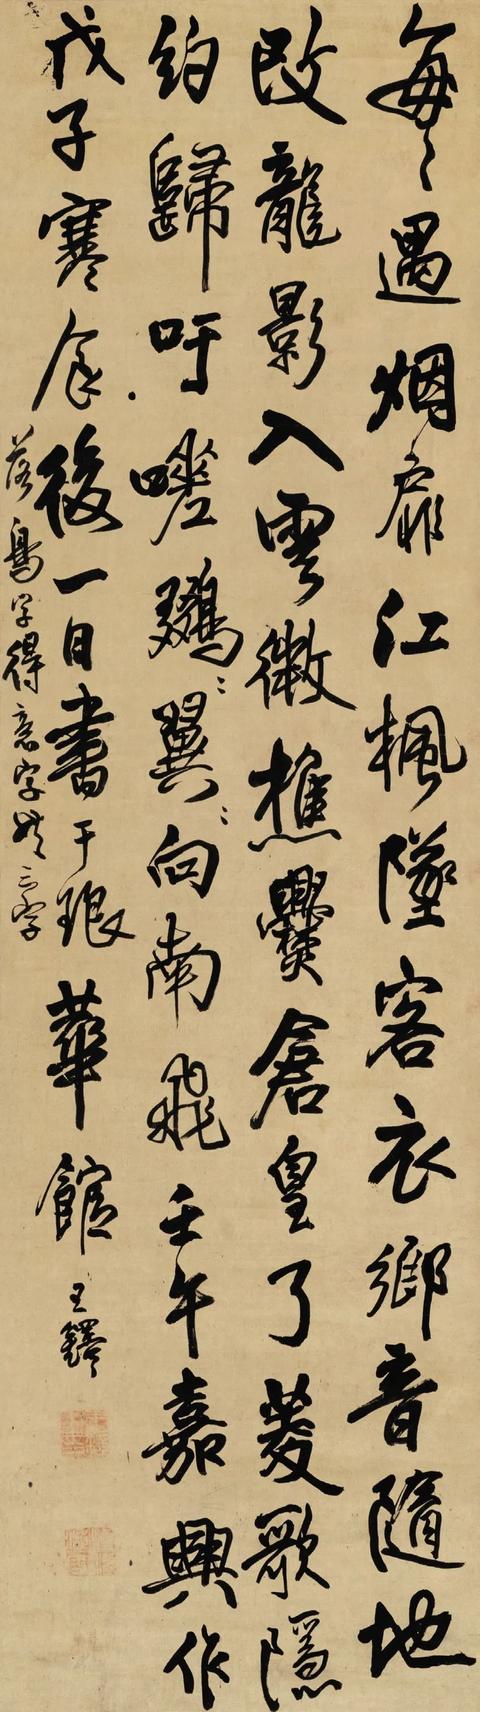 每々遇烟扉江楓墜客衣鄉音隨地
改龍影入雲微樵爨倉皇了菱歌隱
約歸吁嗟翼向南飛壬午嘉興作
戊子寒食後一日書于琅華館王鐸
落鳥字得意字共三字